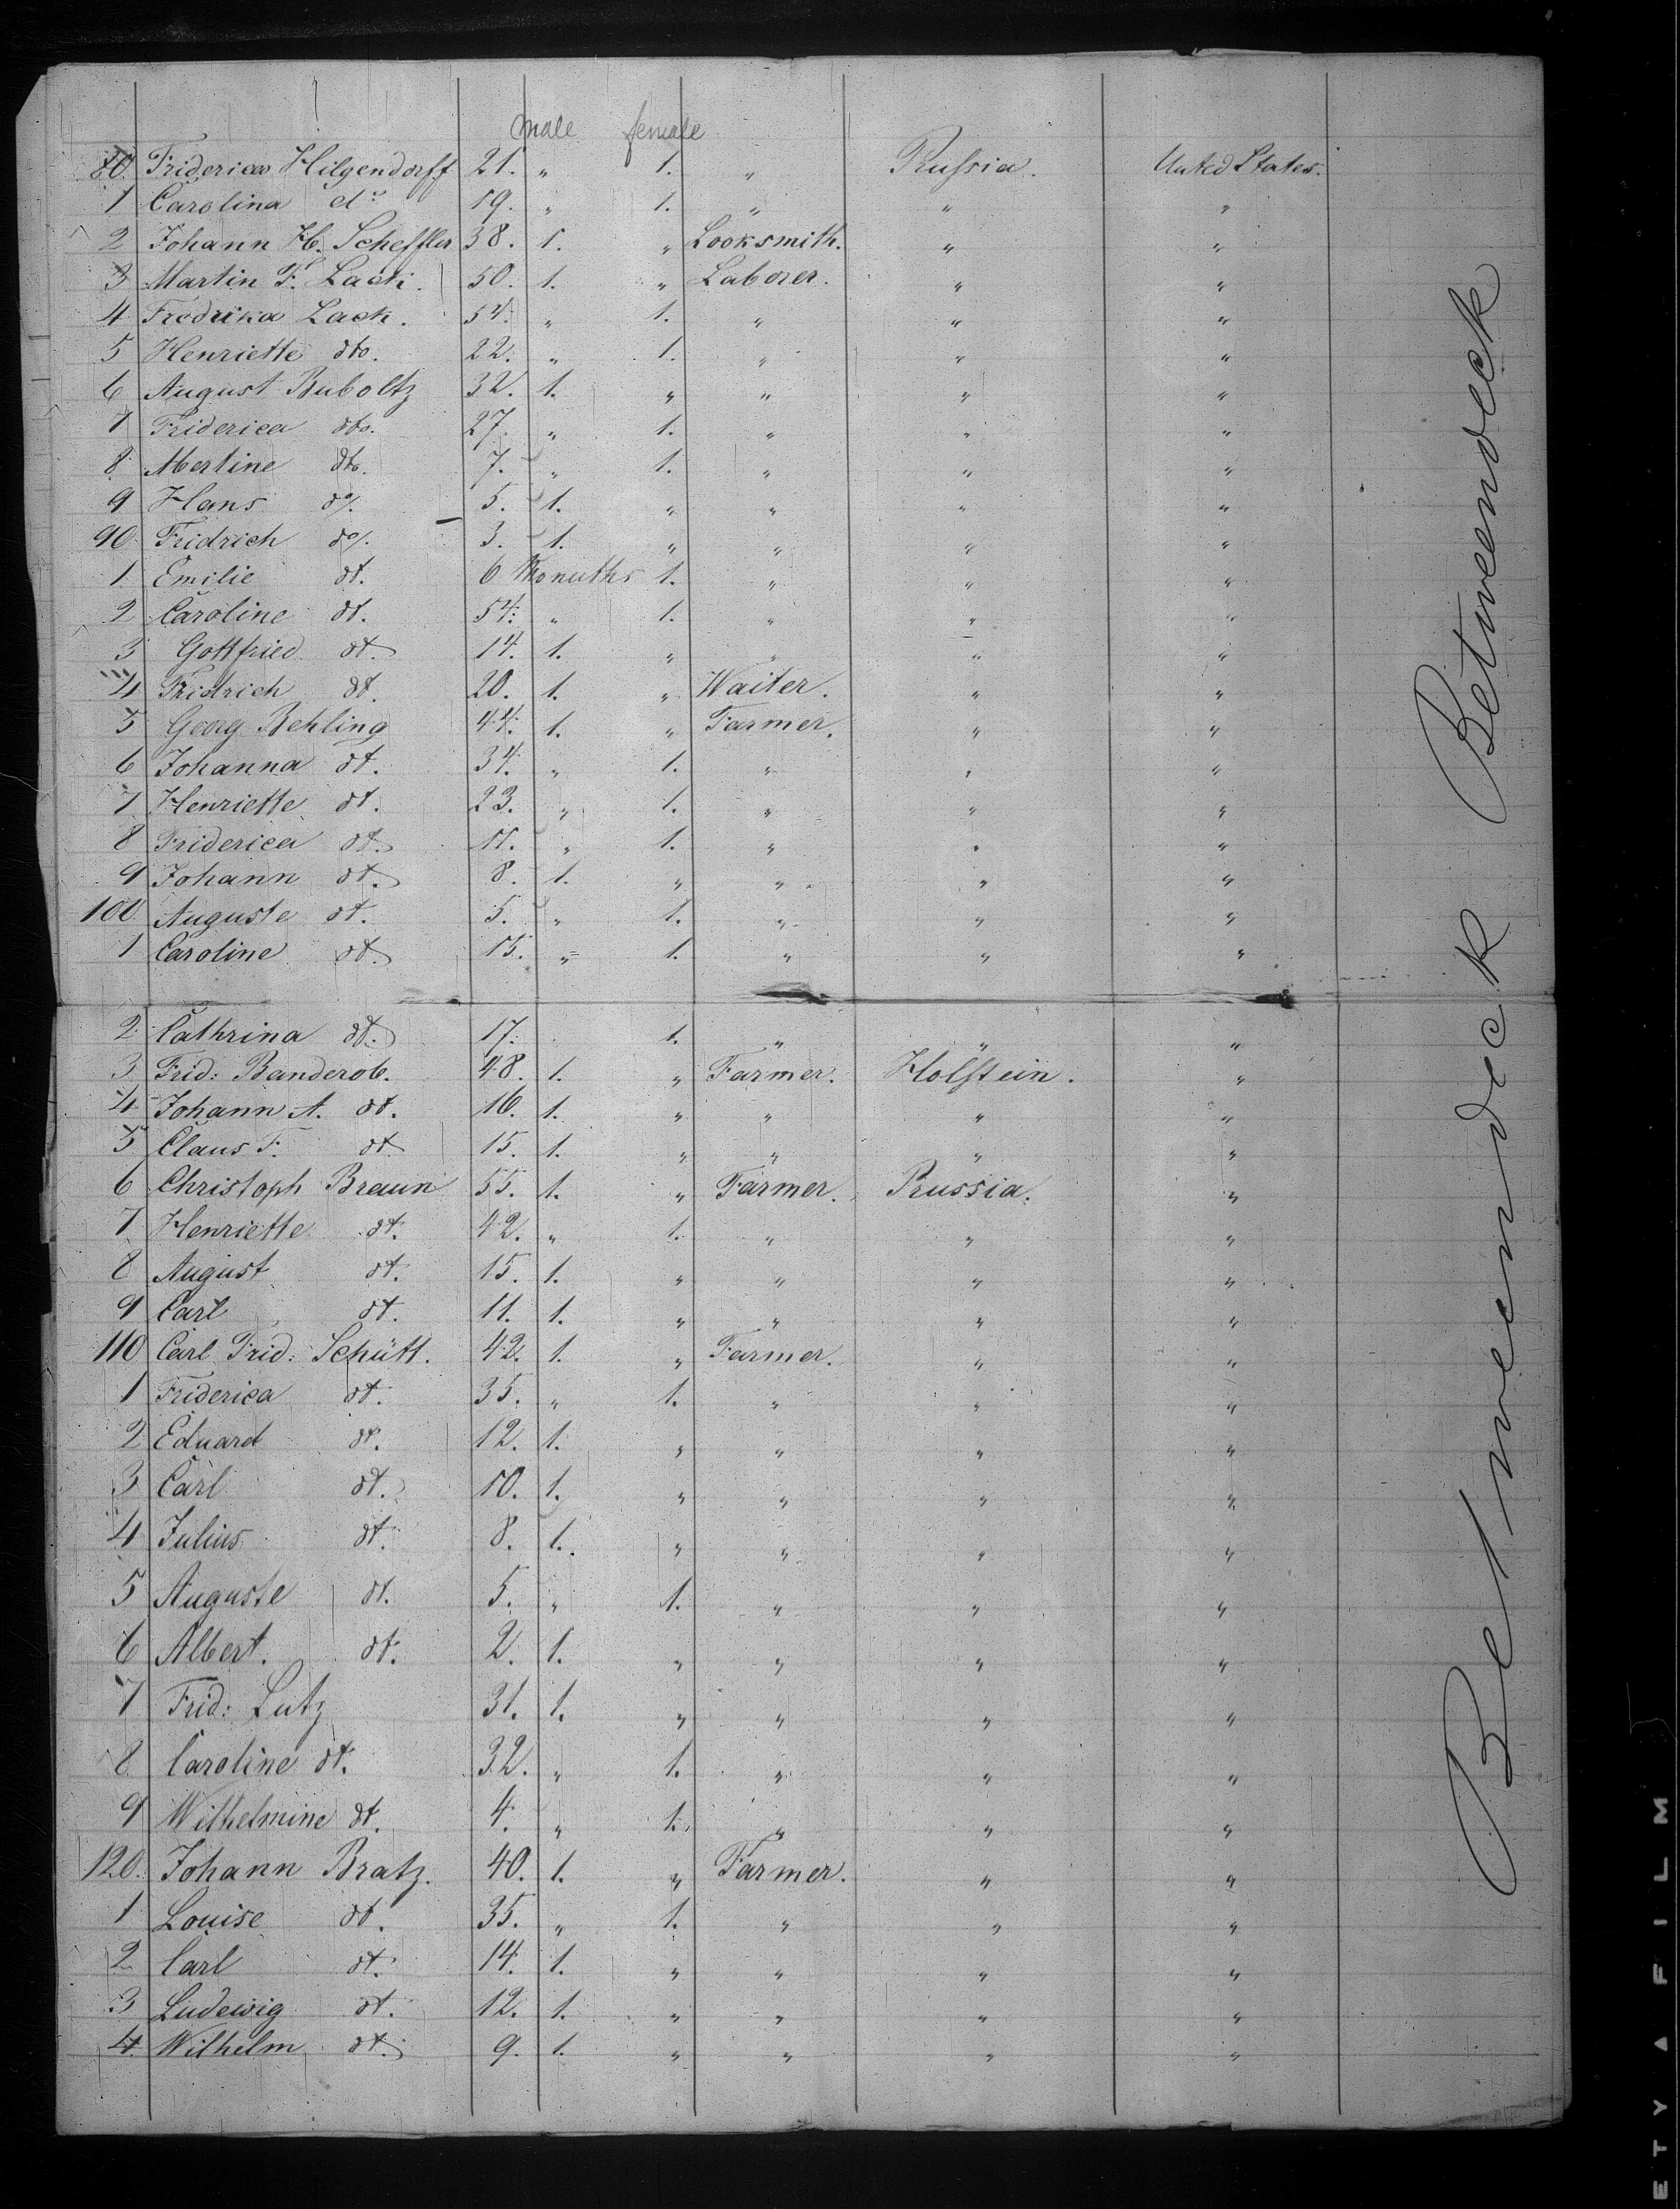 male female
80 Friderica Hilgendorff 21. " 1. " Prussia. United States.
1 Carolina do 19. " 1. " " "
2 Johann H. Scheffler 38. 1. " Looksmith. " "
3 Martin F. Lack. 50. 1. " Laborer. " "
4 Fredrika Lack. 54. " 1. " " "
5 Henriette dto. 22. " 1. " " "
6 August Buboltz 32. 1. " " " "
7 Friderica dto. 27. " 1. " " "
8 Albertine dto. 7. " 1. " " "
9 Hans do/. 5. 1. " " " "
90 Fridrich do/. 3. 1. " " " "
1 Emilie dt. 6 Monuths 1. " " "
2 Caroline dt. 54. " 1. " " "
3 Gottfried dt. 14. 1. " " " "
4 Fridrich dt. 20. 1. " Waiter. " "
5 Georg Behling 44. 1. " Farmer. " "
6 Johanna dt. 34. " 1. " " "
7 Henriette dt. 23. " 1. " " "
8 Friderica dt. 11. " 1. " " "
9 Johann dt. 8. 1. " " " "
100 Auguste dt. 5. " 1. " " "
1 Caroline dt. 15. " 1. " " "
2 Cathrina dt. 17. 1. " " "
3 Frid: Banderob. 48. 1. " Farmer. Holstein. "
4 Johann A. dt. 16. 1. " " " "
5 Claus F. dt. 15. 1. " " " "
6 Christoph Braun 55. 1. " Farmer. Prussia. "
7 Henriette dt. 42. " 1. " " "
8 August dt. 15. 1. " " " "
9 Carl dt. 11. 1. " " " "
110 Carl Frid: Schütt. 42. 1. " Farmer. " "
1 Friderica dt. 35. " 1. " " "
2 Eduard dt. 12. 1. " " " "
3 Carl dt. 10. 1. " " " "
4 Julius dt. 8. 1. " " " "
5 Auguste dt. 5. " 1. " " "
6 Albert. dt. 2. 1. " " " "
7 Frid: Lutz 31. 1. " " " "
8 Caroline dt. 32. " 1. " " "
9 Wilhelmine dt. 4. " 1. " " "
120. Johann Bratz. 40. 1. " Farmer. " "
1 Louise dt. 35. " 1. " " "
2 Carl dt. 14. 1. " " " "
3 Ludewig dt. 12. 1. " " " "
4 Wilhelm dt. 9. 1. " " " "
Betweendeck Betweendeck
ETY A FILM